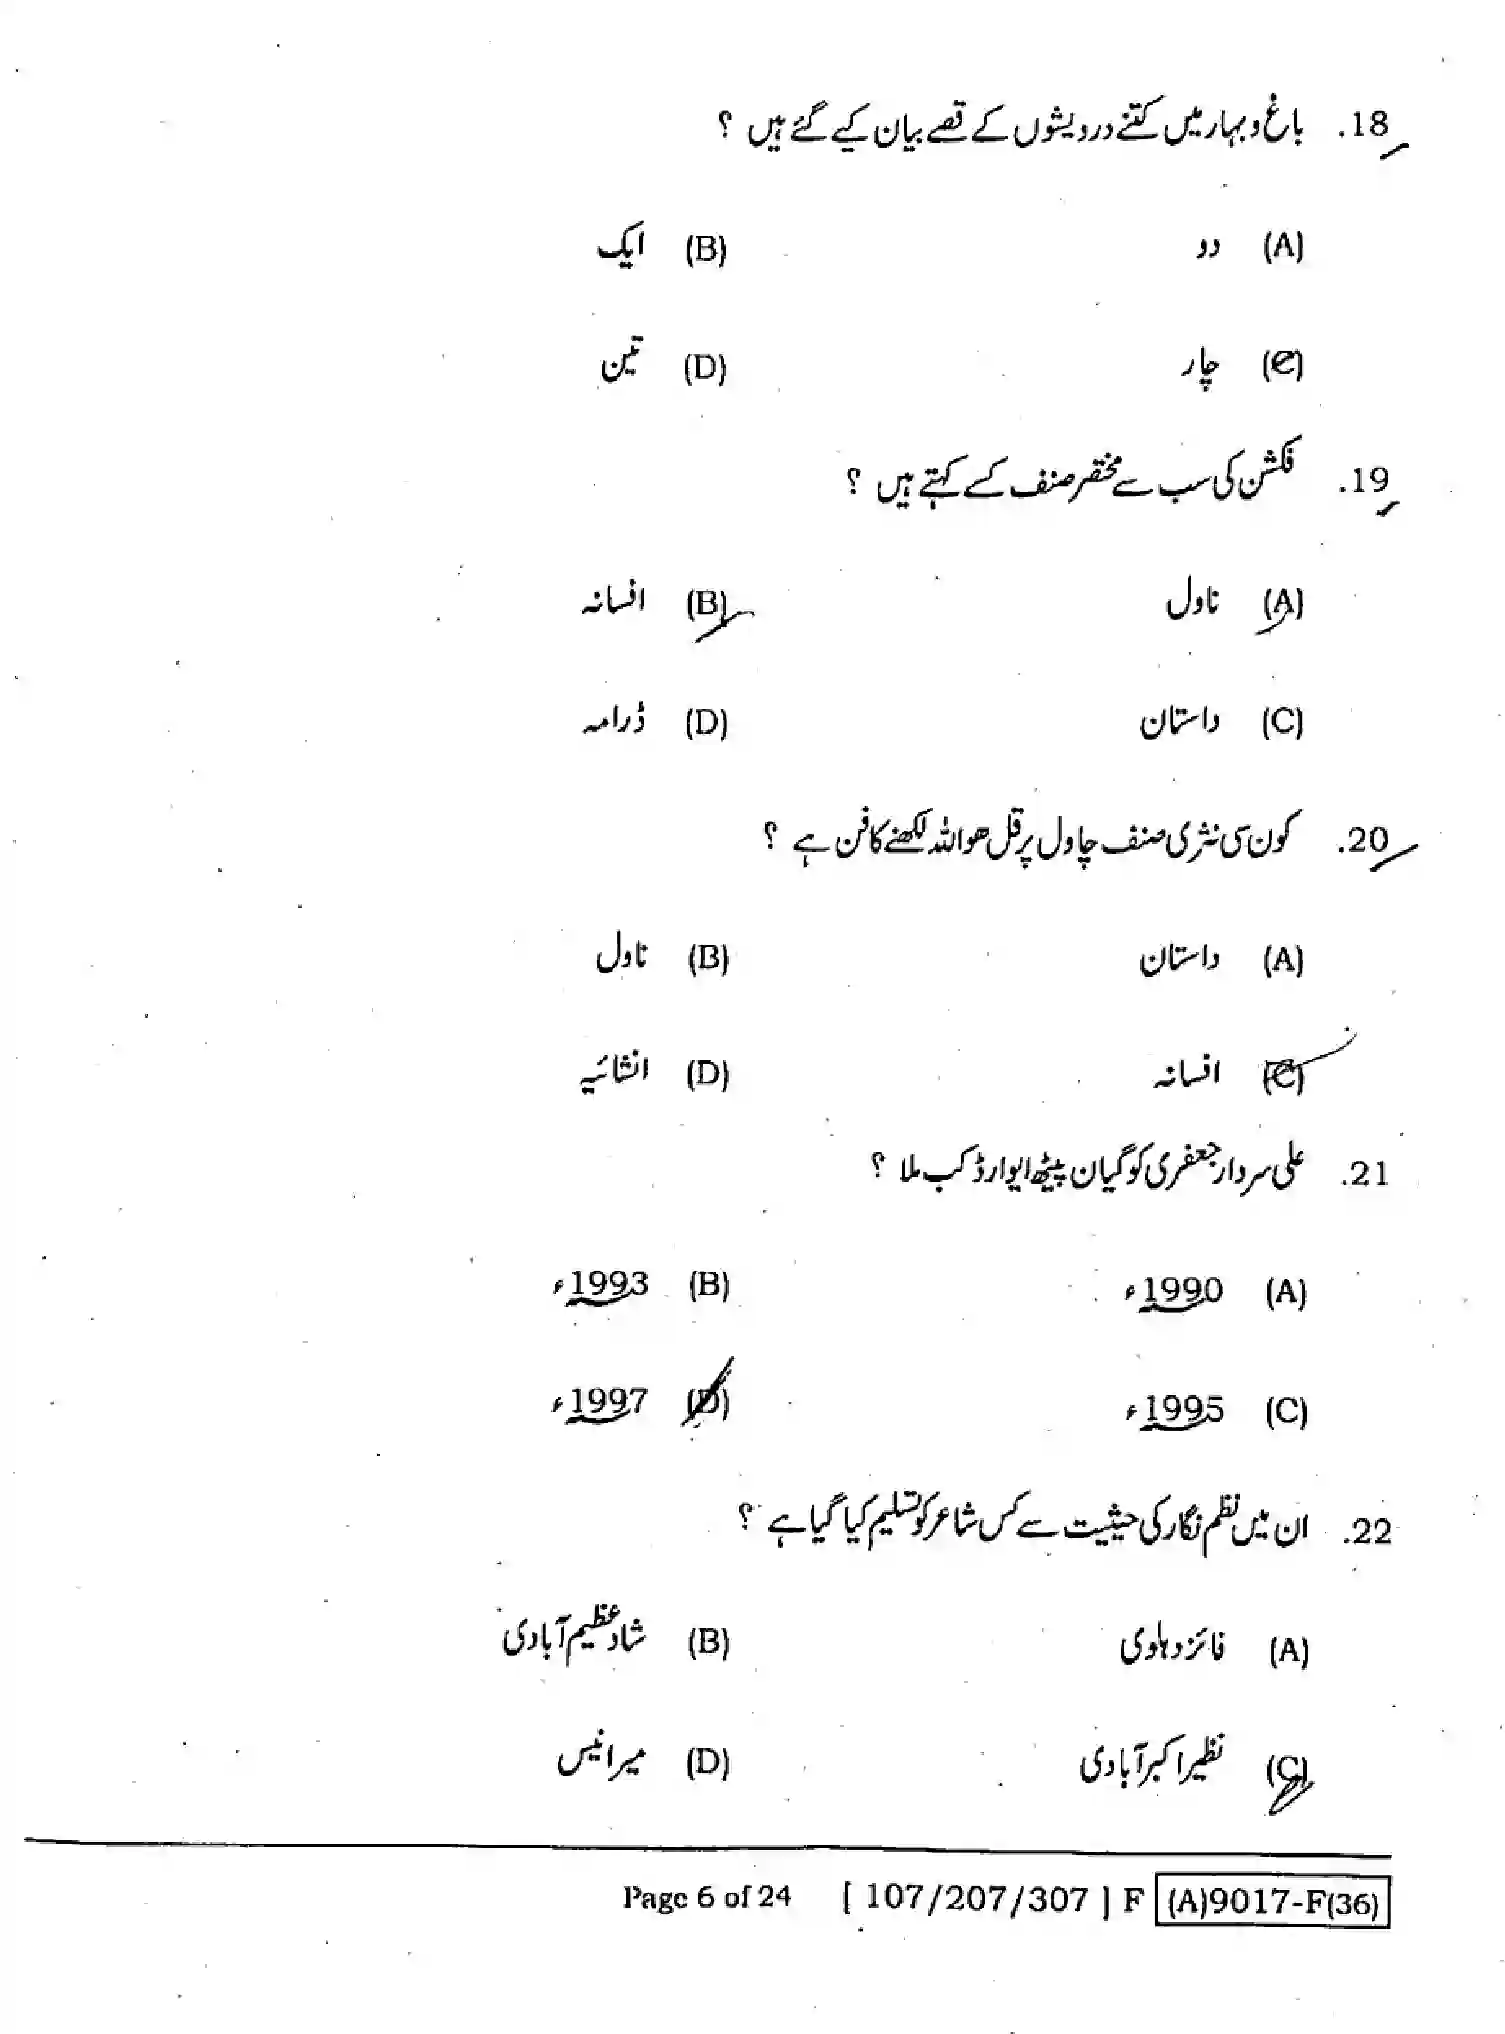 18. باغ و بہار میں کتنے درویشوں کے قصے بیان کیے گئے ہیں ؟
(A) دو (B) ایک
(C) چار (D) تین
19. فکشن کی سب سے مختصر صنف کسے کہتے ہیں ؟
(A) ناول (B) افسانہ
(C) داستان (D) ڈرامہ
20. کون سی نثری صنف چاول پر قل ھو اللہ لکھنے کا فن ہے ؟
(A) داستان (B) ناول
(C) افسانہ (D) انشائیہ
21. علی سردار جعفری کو گیان پیٹھ ایوارڈ کب ملا ؟
(A) 1990ء (B) 1993ء
(C) 1995ء (D) 1997ء
22. ان میں نظم نگار کی حیثیت سے کس شاعر کو تسلیم کیا گیا ہے ؟
(A) فائز دہلوی (B) شاد عظیم آبادی
(C) نظیر اکبر آبادی (D) میر انیس
Page 6 of 24 [ 107/207/307 ] F (A)9017-F(36)